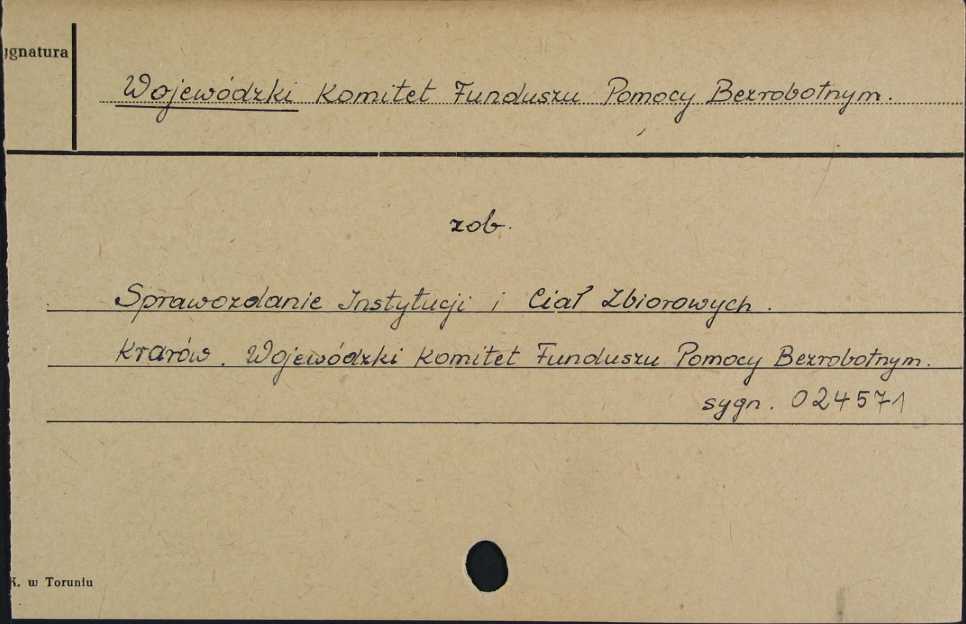 ygnatura
Wojewódzki Komitet Funduszu Pomocy Bezrobotnym.
zob.
Sprawozdanie Instytucji i Ciał Zbiorowych.
Kraków. Wojewódzki Komitet Funduszu Pomocy Bezrobotnym.
sygn. 024571
K. w Toruniu